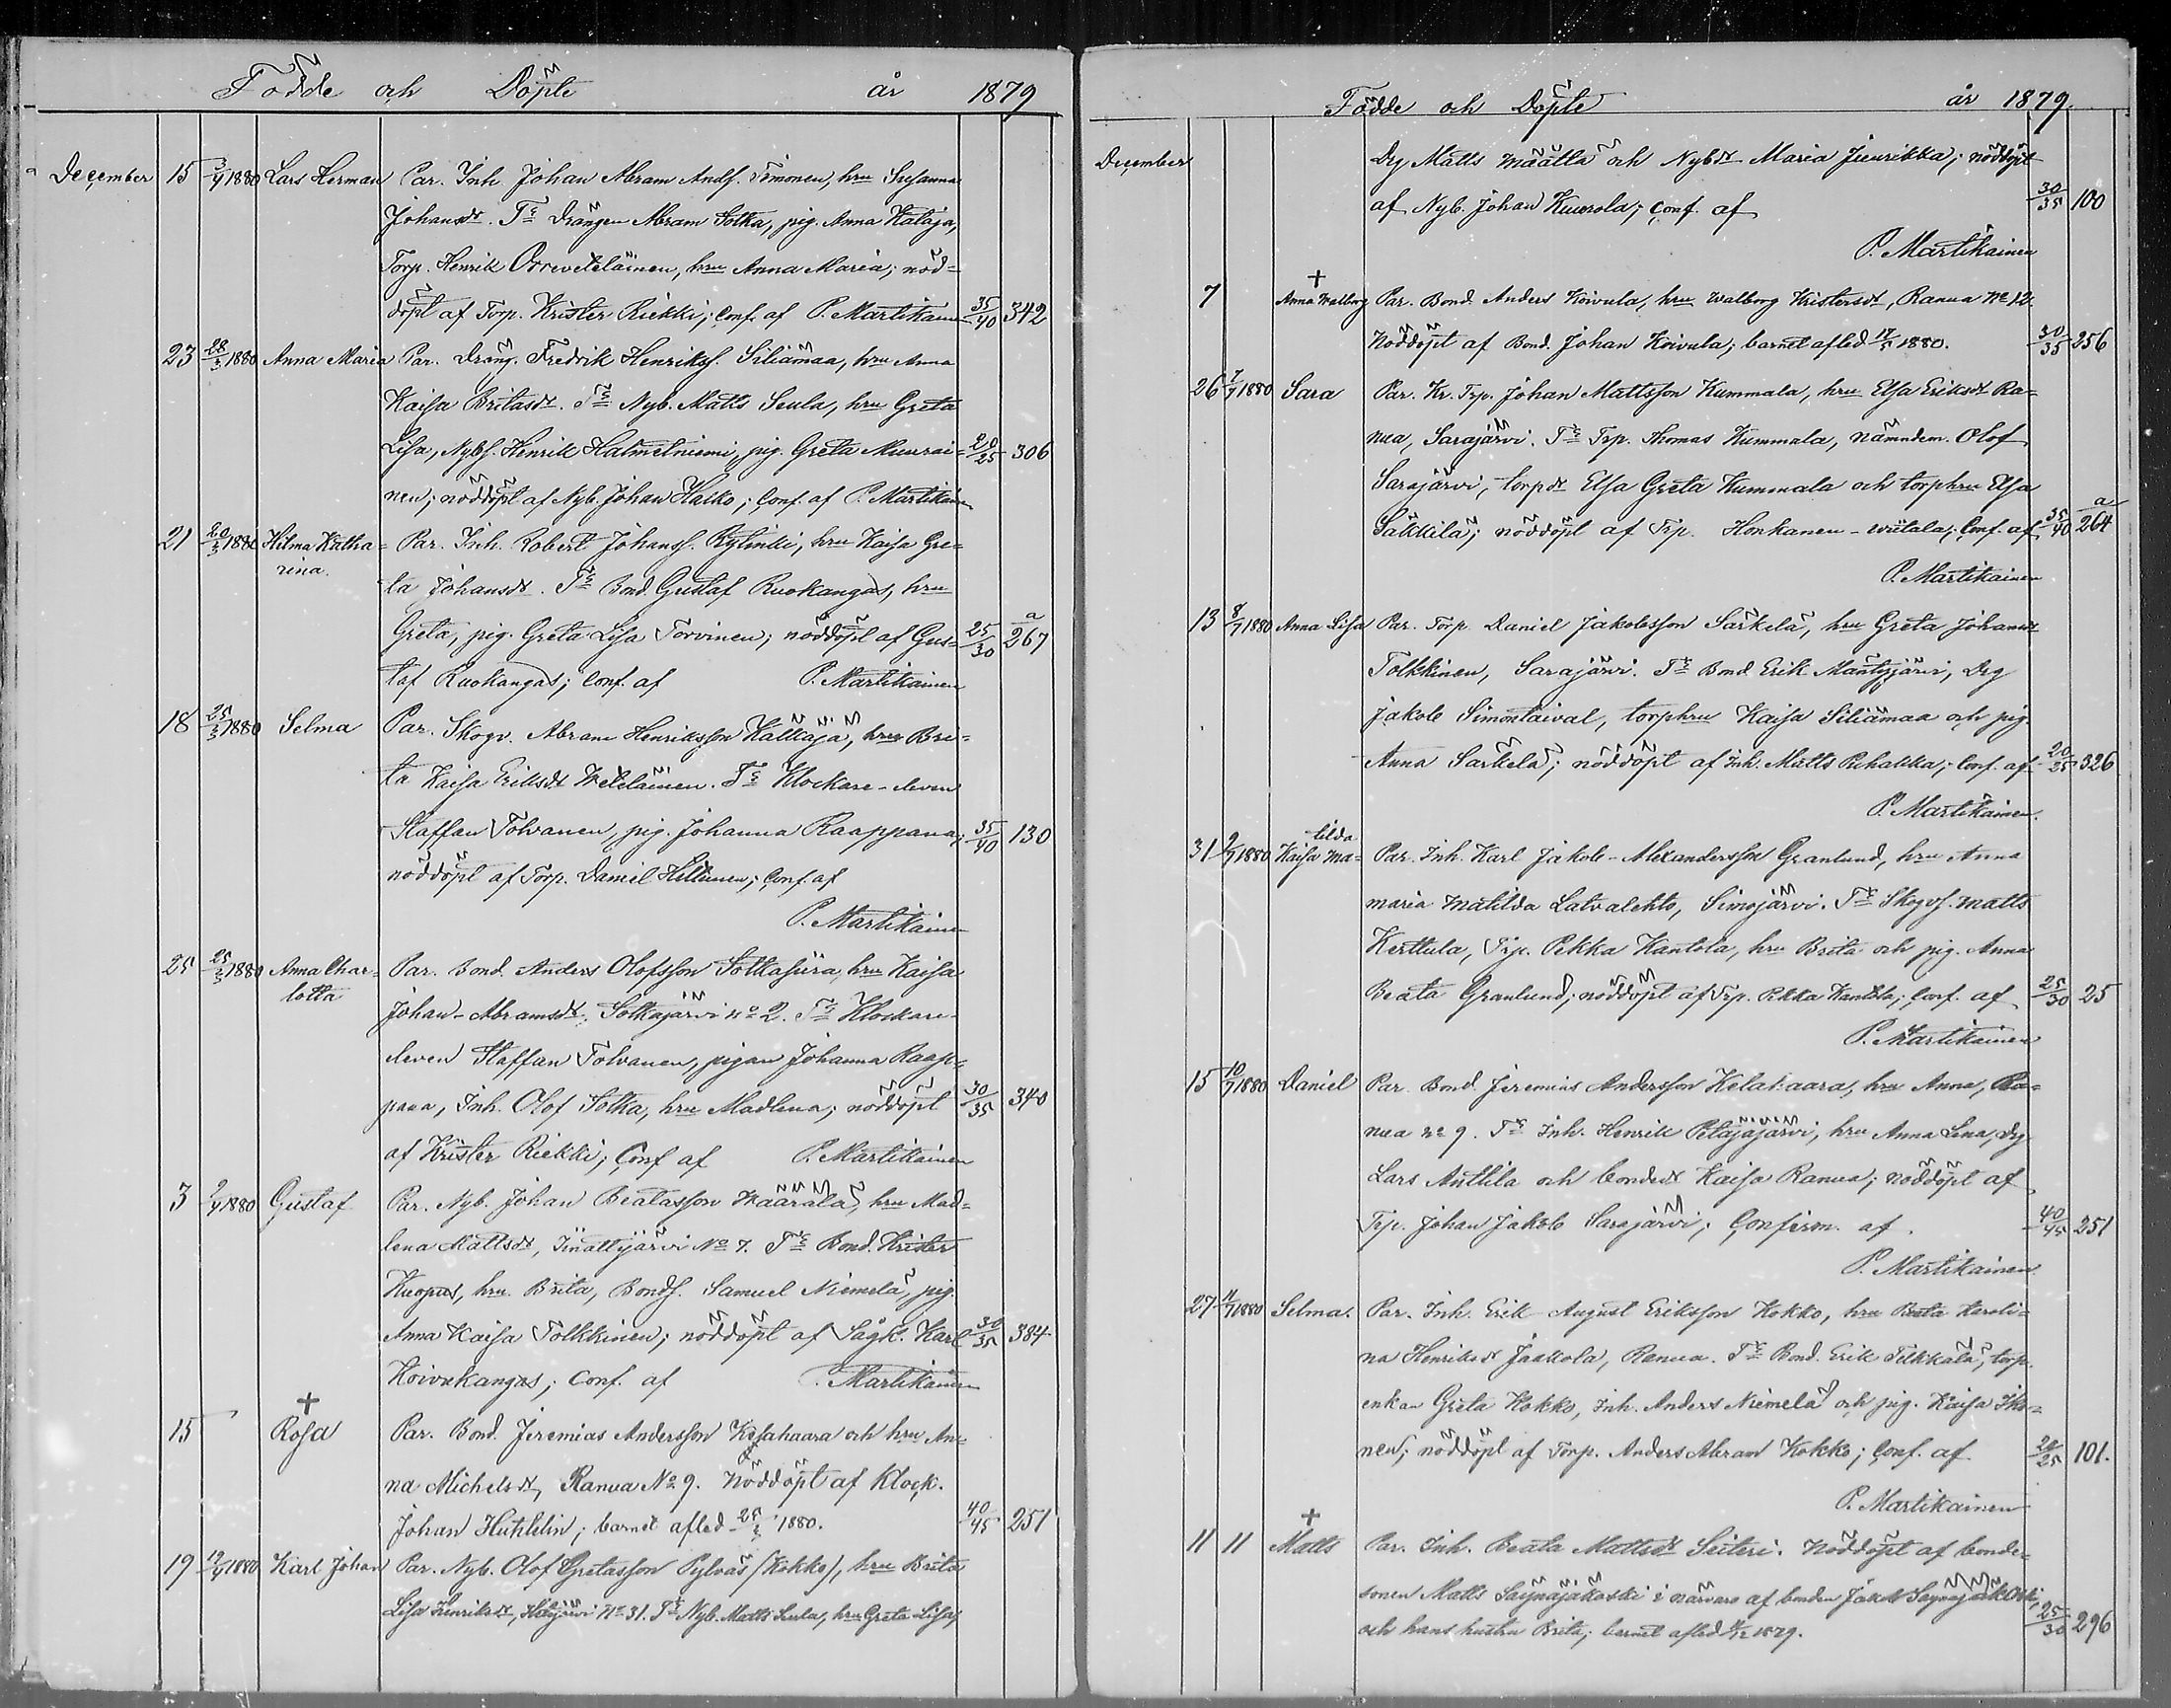 Födde och Döpte år 1879
December 15 3/4 1880 Lars Herman Par. Inh. Johan Abram Andss. Simonen, hru Susanna
Johansdr. Te Drängen Abram Sotka, pig. Anna Kataja,
Torp. Henrik Orreveteläinen, hru Anna Maria; nöd=
döpt af Torp. Krister Riekki; Conf. af P. Martikainen 35/40 342
23 28/3 1880 Anna Maria Par. Dräng. Fredrik Henrikss. Siliämaa, hru Anna
Kaisa Britasdr. Te Nyb. Matts Seula, hru Greta
Lisa, Nybs. Henrik Halmetniemi, pig. Greta Muurai= 20/25 306
nen; nöddöpt af Nyb. Johan Hasko; Conf. af P. Martikainen
21 20/3 1880 Hilma Katha= Par. Inh. Robert Johanss. Rytinki, hru Kaisa Gre=
rina. ta Johansdr. Te Bond. Gustaf Ruokangas, hru
Greta, pig. Greta Lisa Torvinen; nöddöpt af Gus= 25/30 a/267
taf Ruokangas; Conf. af P. Martikainen
18 25/3 1880 Selma Par. Skogv. Abram Henriksson Kälkäjä, hru Bri=
ta Kaisa Eriksdr Weteläinen. Te Klockare-eleven
Staffan Tolvanen, pig. Johanna Raappana; 35/40 130
nöddöpt af Torp. Daniel Hiltunen; Conf. af
P. Martikainen
25 25/3 1880 Anna Char= Par. Bond. Anders Olofsson Sotkasiira, hru Kaisa
lotta Johan-Abramsdr. Sotkajärvi no 2. Te Klockare-
eleven Staffan Tolvanen, pigan Johanna Raap=
pana, Inh. Olof Sotka, hru Madlena; nöddöpt 30/35 340
af Krister Riekki; Conf af P. Martikainen
3 2/4 1880 Gustaf Par. Nyb. Johan Beatasson Waarala, hru Mad=
lena Mattsdr, Iinattijärvi No 7. Te Bond. Krister
Kuopus, hru Brita, Bonds. Samuel Niemelä, pig.
Anna Kaisa Tolkkinen; nöddöpt af Sågk. Karl 30/35 384
Koivukangas; Conf. af P. Martikainen
+
15 Rosa Par. Bond. Jeremias Andersson Kelahaara och hru An=
na Michelsdr, Ranua No 9. Nöddöpt af Klock.
Johan Huhtelin; barnet afled 25/3 1880. 40/45 251
19 12/4 1880 Karl Johan Par. Nyb. Olof Gretasson Pylväs (Kokko), hru Brita
Lisa Henriksdr, No 31. Te Nyb. Matts Seula, hru Greta Lisa,
Födde och Döpte år 1879
December Drg Matts Määttä och Nybdr Maria Juurikka; nöddöpt
af Nyb. Johan Kuurola; Conf. af 30/35 100
P. Martikainen
+
7 Anna Walborg Par. Bond. Anders Koivula, hru Walborg Kristersdr, Ranua No 12
Nöddöpt af Bond. Johan Koivula; barnet afled 17/5 1880. 30/35 256
26 7/7 1880 Sara Par. Kr. Trp. Johan Mattsson Kummala, hru Elsa Eriksdr Ra=
nua, Sarajärvi. Te Trp. Thomas Kummala, nämndem. Olof
Sarajärvi, torpdr Elsa Greta Kummala och torphru Elsa
Säkkilä; nöddöpt af Trp. Honkanen-wiitala; Conf. af 35/40 a/264
P. Martikainen
13 8/7 1880 Anna Lisa Par. Torp Daniel Jakobsson Särkelä, hru Greta Johansdr
Tolkkinen, Sarajärvi. Te Bond. Erik Mäntyjärvi, Drg
Jakob Simontaival, torphru Kaisa Siliämaa och pig.
Anna Särkelä; nöddöpt af Inh. Matts Puhakka; Conf. af 20/25 326
P. Martikainen.
tilda
31 9/7 1880 Kaisa Ma= Par. Inh. Karl Jakob-Alexandersson Granlund, hru Anna
maria Matilda Latvalehto, Simojärvi. Te Skogvs. Matts
Kerttula, Trp. Pekka Kantola, hru Brita och pig. Anna
Beata Granlund; nöddöpt af Trp. Pekka Kantola; Conf. af 25/30 25
P. Martikainen
15 10/7 1880 Daniel Par. Bond. Jeremias Andersson Kelahaara, hru Anna, Ra=
nua no 9. Te Inh. Henrik Petäjäjärvi, hru Anna Lena, Drg
Lars Anttila och bondedr Kaisa Ranua; nöddöpt af
Trp. Johan Jakob Sarajärvi; Confirm. af. 40/45 251
P. Martikainen
27 11/7 1880 Selma. Par. Inh. Erik August Eriksson Kokko, hru Beata Karoli=
na Henriksdr Jaakola, Ranua. Te Bond. Erik Tikkala, torp.
enkan Greta Kokko, Inh. Anders Niemelä och pig. Kaisa Iko=
nen; nöddöpt af Torp. Anders Abram Kokko; Conf. af 20/25 101.
P. Martikainen
+
11 11 Matts Par. Inh. Beata Mattsdr Seiteri. Nöddöpt af bonde=
sonen Matts Säynäjäkoski i närvaro af bonden Jakob Säynäjäkoski,
och hans hustru Brita; barnet afled 11/12 1879. 25/30 296